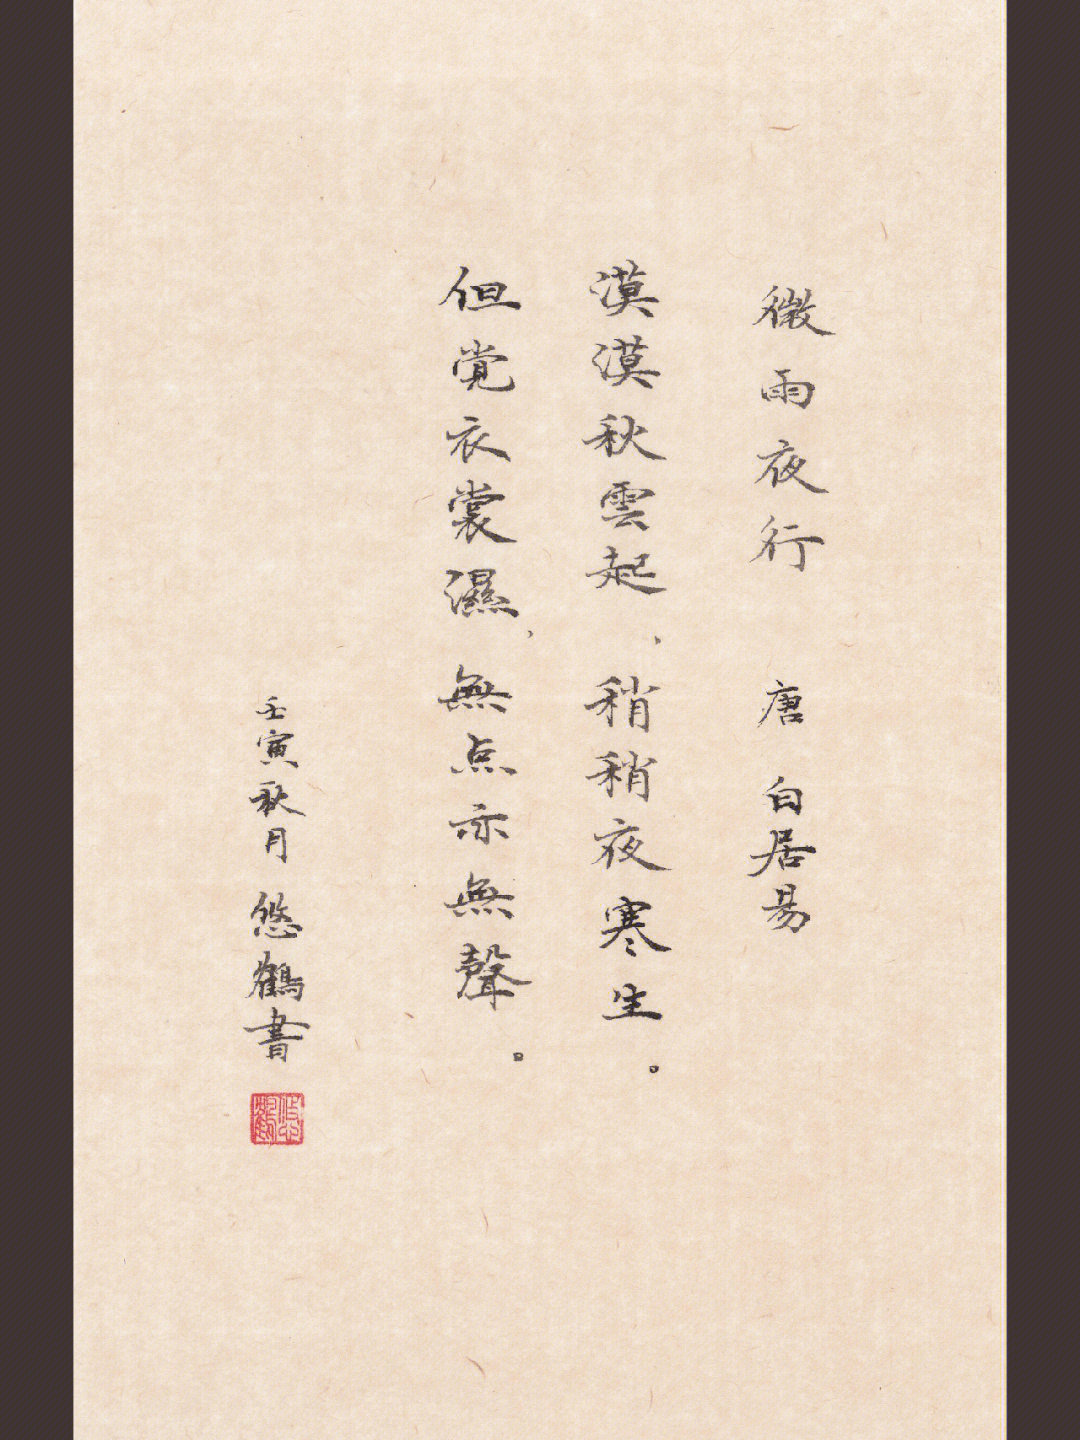 微雨夜行 唐 白居易
漠漠秋雲起、稍稍夜寒生。
但覚衣裳濕、無点亦無聲。
壬寅秋月 悠鶴書
悠鶴